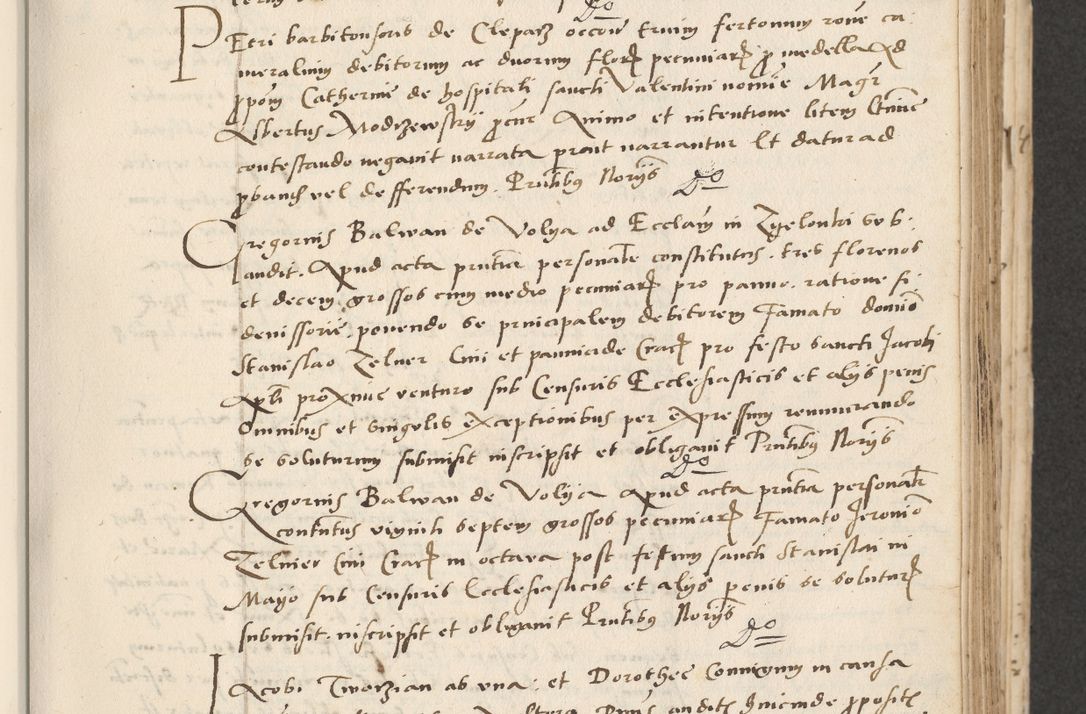 Petri barbitonsoris de Cleparz occōn̄ trium fertonum rōne ca
meralium debitorum ac duorum florꝝ pecuniarꝝ ꝓ medella Ad
ꝓpōm Catherine de hospitali sancti Valentini noīe Magr̄
Albertus Modrzewskij ꝓcūr Animo et intentione litem
contestando negavit narrata prout narrantur Et datur ad
ꝓband vel defferendum. Pn̄tibꝯ Norijs Do
Gregorius Balwan de Volya ad Eccl̄am in Zyelonki
audit. Apud acta pn̄tia personal̄r constitutus. tres florenos
et decem grossos cum medio pecuniarꝝ pro panno. ratione fi
deiussorie. ponendo se principalem debitorem Famato domīo
Stanislao Zelner Civi et pannicide Cracꝝ pro festo sancti Jacobi
Apl̄i proxime venturo sub Censuris Ecclesiasticis et alijs penis
Omnibus et singulis exceptionibus per expressum renunciando
se soluturum submisit inscripsit et obligavit Pn̄tibꝯ Norijs
Do
Gregorius Balwan de Volija Apud acta pn̄tia personal̄r
contentus viginti septem grossos pecuniarꝝ Famato Jeronīo
Zelner Civi Cracꝝ in octava post festum sancti Stanislai in
Mayo sub Censuris Ecclesiasticis et alijs penis se soluturꝝ
submisit. inscripsit et obligavit Pn̄tibꝯ Norijs
Do
Jacobi Tworzian ab una. et Dorothee Coniugum in causa